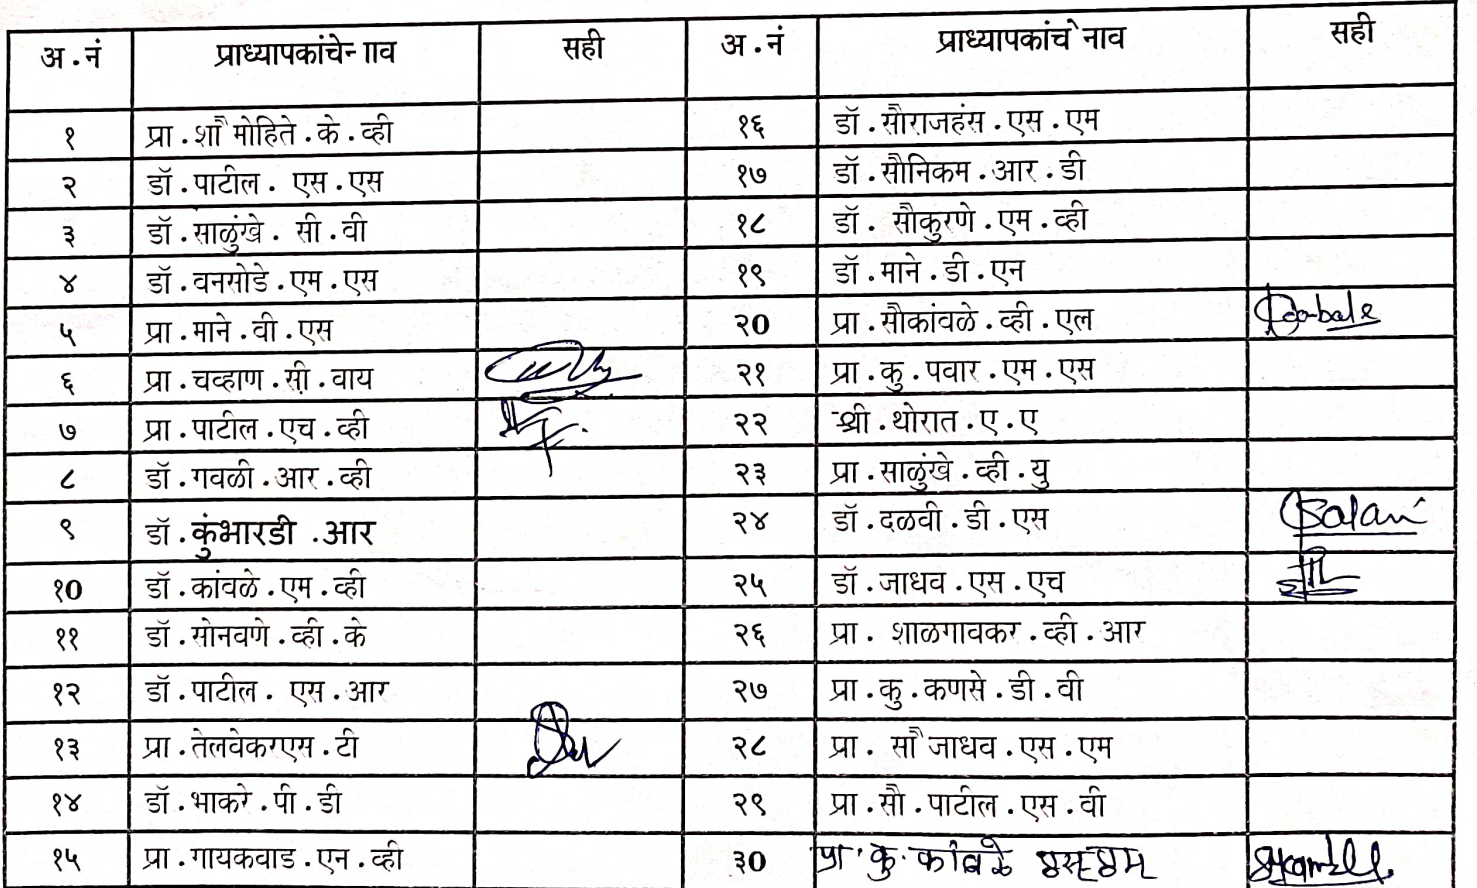 अ.नं प्राध्यापकांचे नाव सही अ.नं प्राध्यापकांचे नाव सही
१ प्रा.सौ मोहिते.के.व्ही १६ डॉ.सौराजहंस.एस.एम
२ डॉ.पाटील. एस.एस १७ डॉ.सौनिकम.आर.डी
३ डॉ.साळुंखे. सी.वी १८ डॉ. सौकुरणे.एम.व्ही
४ डॉ.वनसोडे.एम.एस १९ डॉ.माने.डी.एन
५ प्रा.माने.वी.एस २० प्रा.सौकांवळे.व्ही.एल
६ प्रा.चव्हाण.सी.वाय २१ प्रा.कु.पवार.एम.एस
७ प्रा.पाटील.एच.व्ही २२ श्री.थोरात.ए.ए
८ डॉ.गवळी.आर.व्ही २३ प्रा.साळुंखे.व्ही.यु
९ डॉ.कुंभारडी.आर २४ डॉ.दळवी.डी.एस
१० डॉ.कांवळे.एम.व्ही २५ डॉ.जाधव.एस.एच
११ डॉ.सोनवणे.व्ही.के २६ प्रा. शाळगावकर.व्ही.आर
१२ डॉ.पाटील. एस.आर २७ प्रा.कु.कणसे.डी.वी
१३ प्रा.तेलवेकरएस.टी २८ प्रा. सौ जाधव.एस.एम
१४ डॉ.भाकरे.पी.डी २९ प्रा.सौ.पाटील.एस.वी
१५ प्रा.गायकवाड.एन.व्ही ३० प्रा.कु.कांबळे एस.एम